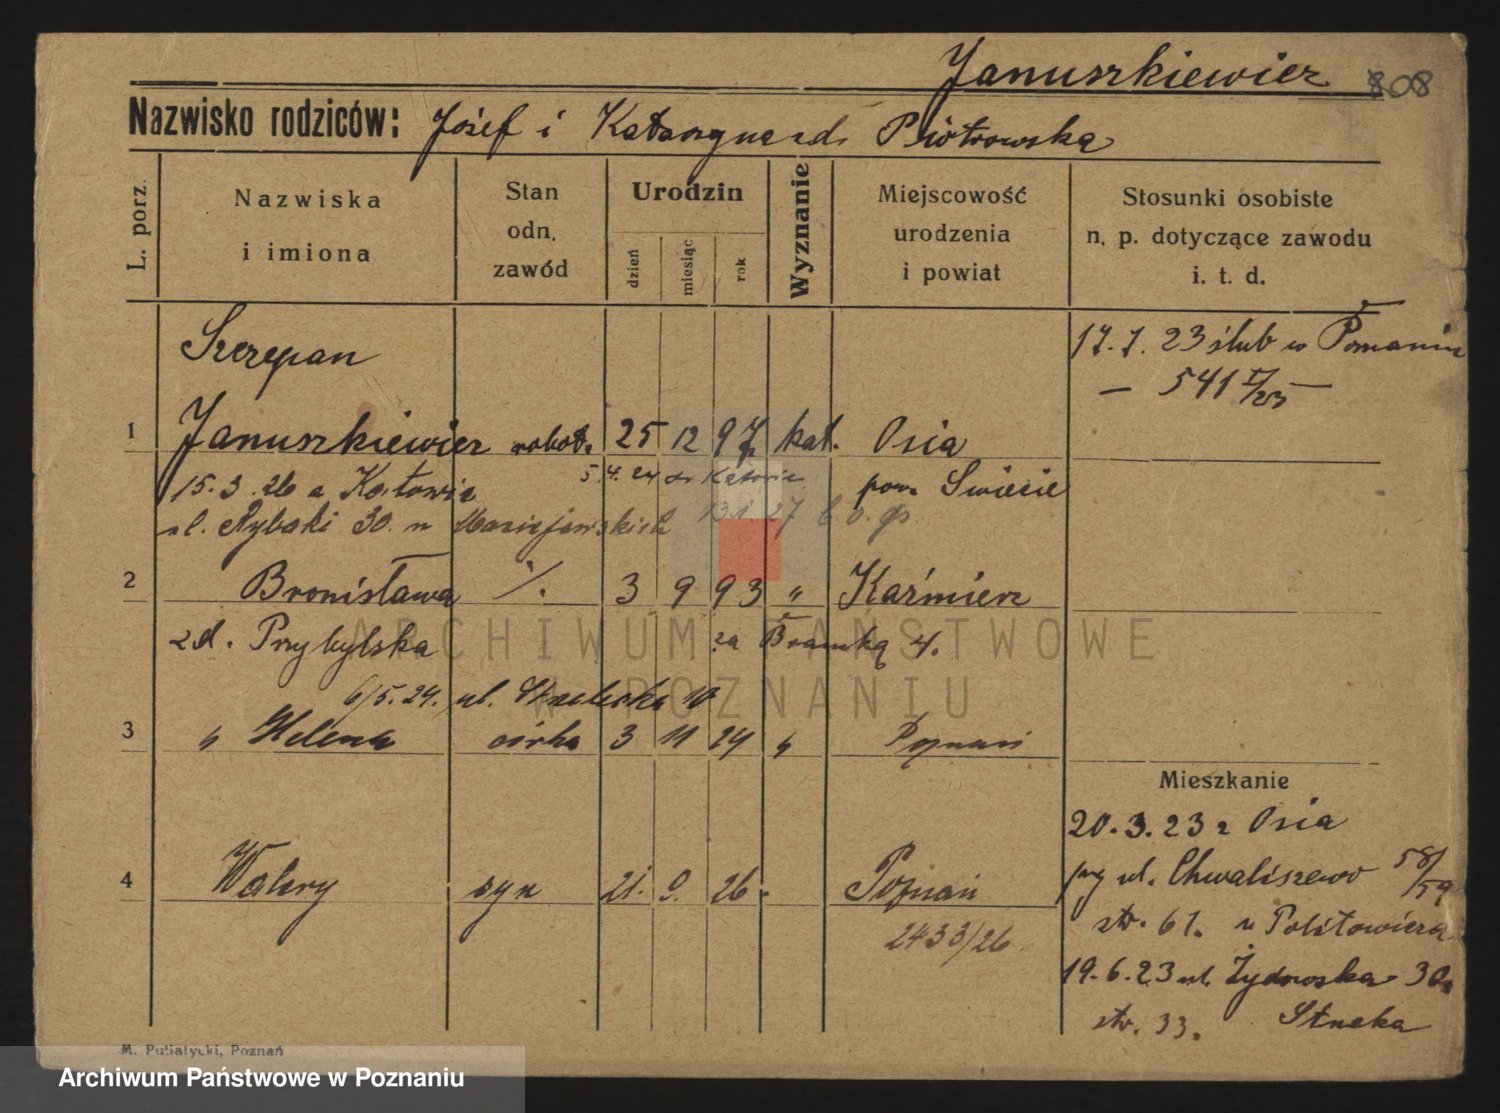 Januszkiewicz 808
Nazwisko rodziców: Józef i Katarzyna zd. Piotrowska
L. porz.
Nazwiska i imiona
Stan odn. zawód
Urodzin
dzień miesiąc rok
Wyznanie
Miejscowość urodzenia i powiat
Stosunki osobiste n. p. dotyczące zawodu i. t. d.
Szczepan
17. 7. 23 ślub w Poznaniu
— 541 I/23 —
1 Januszkiewicz robot. 25 12 97 kat. Osia
5.4.24 do
pow. Świecie
15.3.26 z Katowic
ul. Rybaki 30. u
13.1.27
2 Bronisława ·/. 3 9 93 „ Kaźmierz
zd. Przybylska za Bramką 4.
6/5.24. ul. Strzelecka 10
3 „ Helena córka 3 11 24 „ Poznań
Mieszkanie
20.3.23 z Osia
przy ul. Chwaliszewo 58/59
4 Walery syn 21. 9. 26. Poznań
str. 61. u Politowicza
2433/26
19.6.23 ul. Żydowska 30.
str. 33.
M. Putiatycki, Poznań
ARCHIWUM PAŃSTWOWE
W POZNANIU
Archiwum Państwowe w Poznaniu